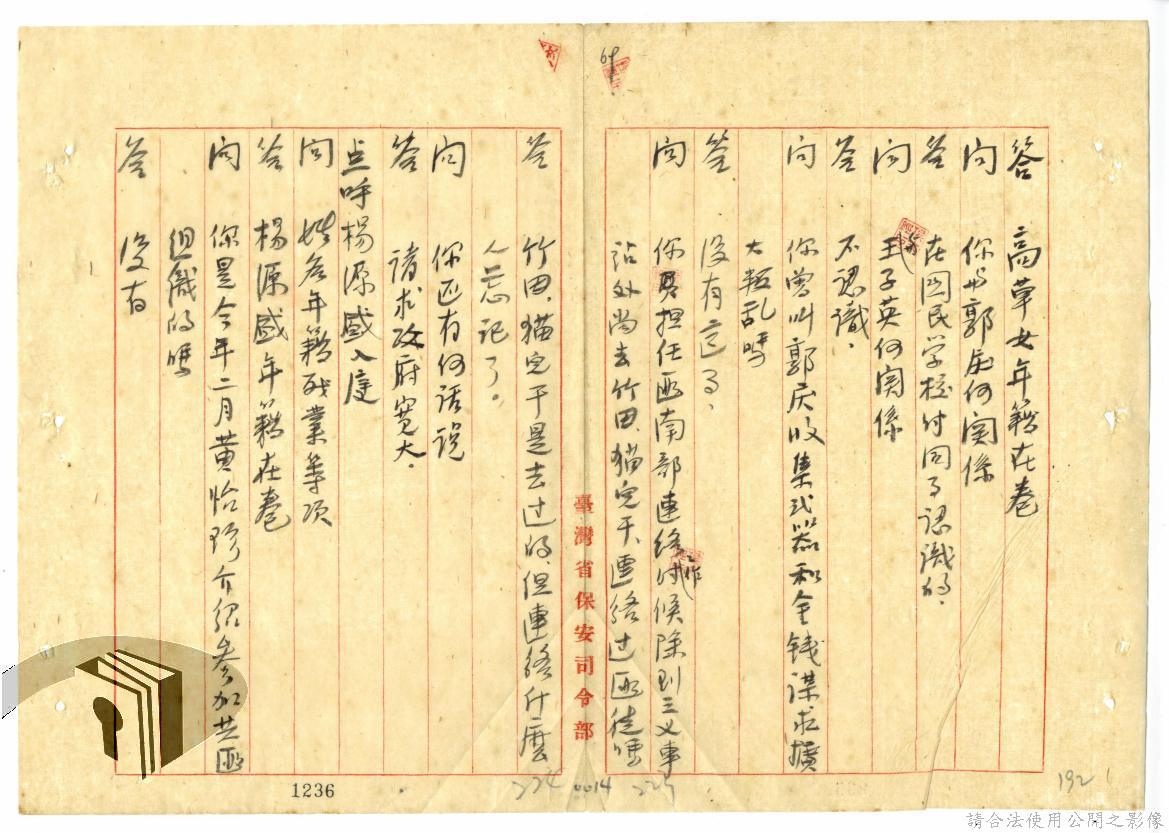 答 高草女年籍在卷
问 你与郭庆何関係
答 在国民学校付同了認識的、
问 王子英何関係
答 不認識、
问 你曽叫郭庆收集武器和金钱谋求擴
大叛乱嗎
答 没有这了、
问 你担任匪南部連絡工作时候除到三义車
站外尚去竹田、猫定干、連絡过匪徒嗎
臺灣省保安司令部
答 竹田、猫定干是去过的、但連絡什麼
人忘记了。
问 你还有何话说
答 请求政府宽大、
点呼楊源盛入庭
问 姓名年籍职業等項
答 楊源盛年籍在卷
问 你是今年二月黄怡珍介紹参加共匪
组織的嗎
答 没有
64
1236
224
0014
225
192
請合法使用公開之影像